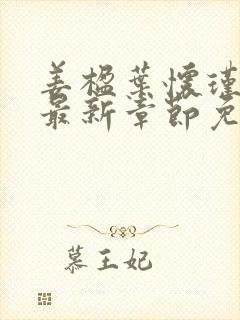 姜楹葉懷瑾
最新章節免
慕王妃